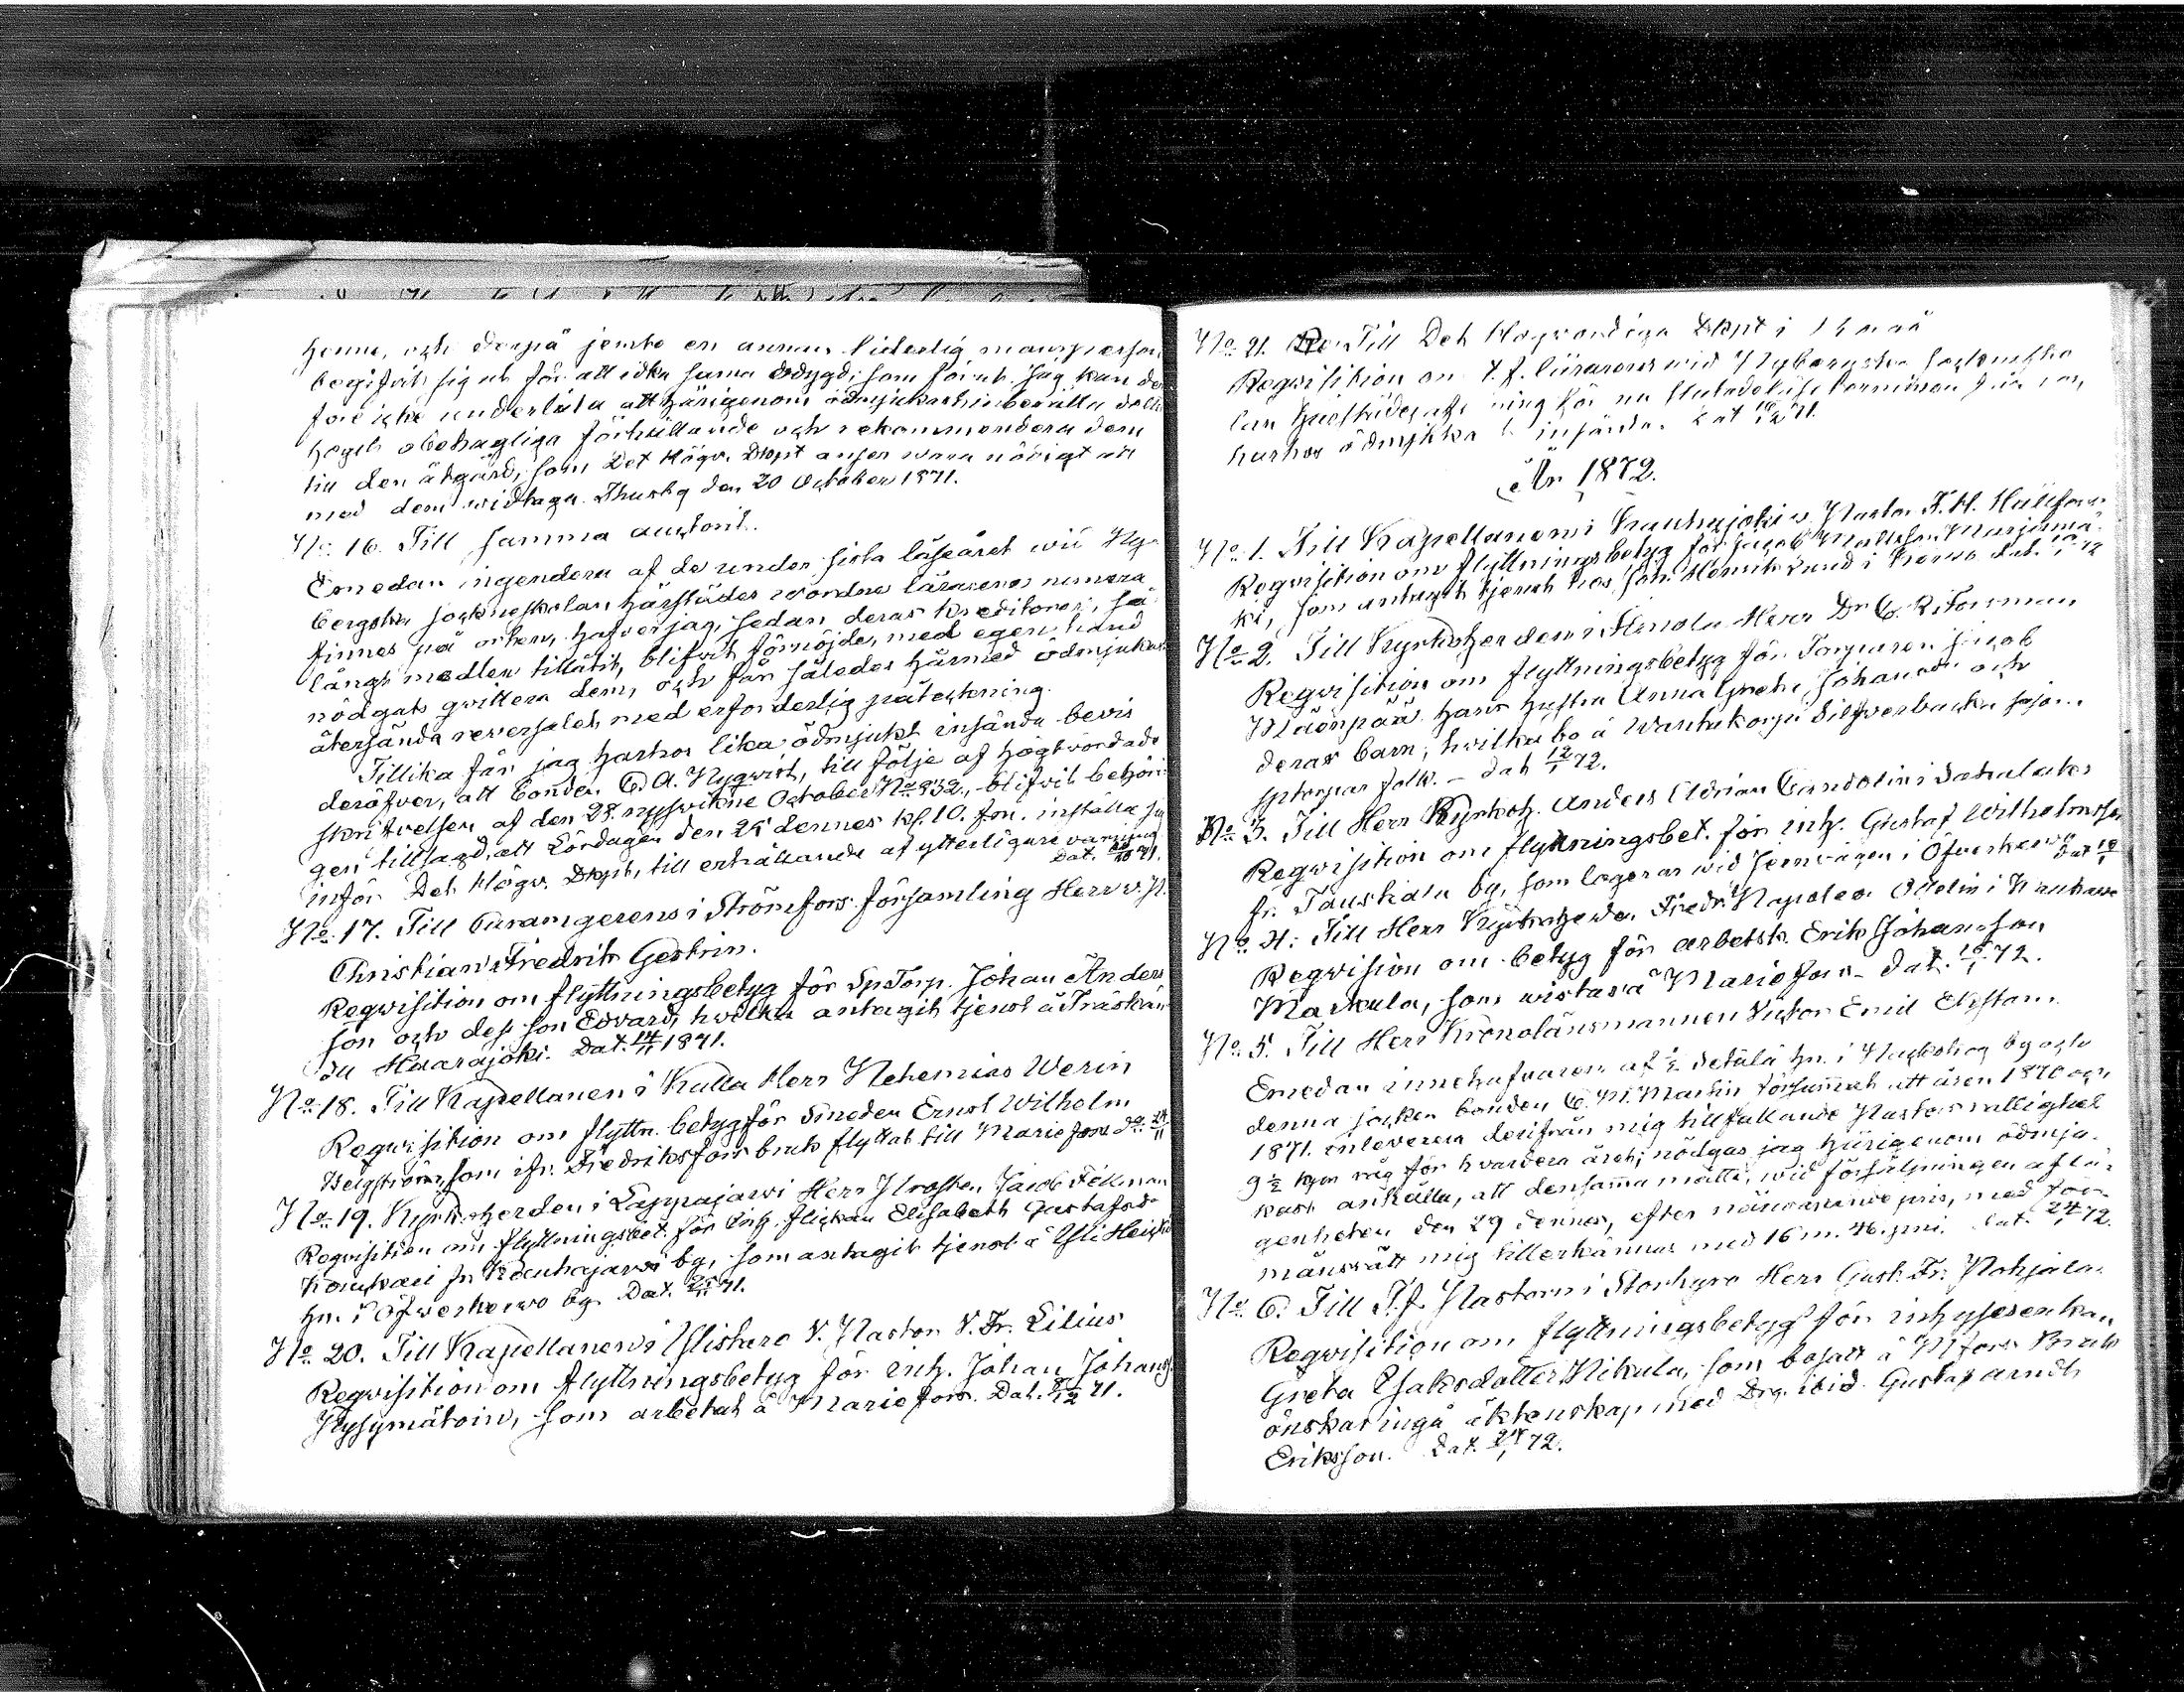 henne, och derpå jemte en annan liderlig mansperson
begifvit sig ut för att idka samma odygd, som förut. Jag kan der
före icke underlåta att härigenom ödmjukast inberätta detta
högst obehagliga förhållande och rekommendera dem
till den åtgärd, som Det Högv. Dkpt anser vara nödigt att
med dem vidtaga. Thusby den 20 October 1871.
No. 16. Till samma auctorit.
Emedan ingendera af de under sista läseåret vid Ny-
bergska sockneskolan härstädes vordne lärarenes numera
finnes på orten, hafver jag, sedan deras kreditorer, så
långt medlen tillåtit, blifvit förnöjde, med egen hand
nödgats qvittera dem, och får således härmed ödmjukast
återsända reversalet med erforderlig påteckning.
Tillika får jag harhos lika ödmjukt insända bevis
deröfver, att bonden C. A. Nyqvist, till följe af högtvördade
skrifvelsen af den 28. nyssvikne October No 832, blifvit behöri
gen tillsagd, att Lördagen den 25 dennes kl. 10. f.m. inställa sig
inför Det Högv. Dkpt, till erhållande af ytterligare varning
Dat. 71.
No. 17. Till Curamgerens i Strömfors församling Herr v. P.
Christian Fredrik Gestrin.
Reqvisition om flyttningsbetyg för SpTorp. Johan Anders
son och dess son Edvard, hvilka antagit tjenst å Träskän
da Haarajoki. Dat. 14/11 1871.
No. 18. Till Kapellanen i Kulla Herr Nehemias Werin
Reqvisition om flyttn. betyg för Smeden Ernst Wilhelm
Bergström, som ifr. Fredriksfors bruk flyttat till Mariefors
No. 19. Kyrkoherden i Lappajärvi Herr Prosten Jacob Fellman
Reqvisition om flyttningsbet. för inh. flickan Elisabeth Gustafsdr
Kauhajarvi by, som antagit tjenst å Yli Heick
hn. i Öfverkervo by. Dat. 71.
No. 20. Till Kapellanen i Ylistaro V. Pastor V. Fr. Lilius
Reqvisition om flyttningsbetyg för inh. Johan Johans
som arbetat å Mariefors. Dat. 71.
No. 21. Till Det Högvördiga Dkpt i
Reqvisition om t.f. lärarens vid Nybergska sockensko
lan härstädes
harhos ödmjukt insända. Dat 71.
År 1872.
No. 1. Till Kapellanen i Kauhajoki v. Pastor K. H. Hällfors
Reqvisition om flyttningsbetyg för Jacob
ki, som antagit tjenst hos
No. 2. Till Kyrkoherden i Heinola Herr Dr C. Riforsman
Reqvisition om flyttningsbetyg för Torparen Jacob
hans hustru Anna Greta och
deras barn, hvilka bo å Wantakorpi Silfverbacka
sptorpar folk. - Dat 12/1 72.
No. 3. Till Herr Kyrkoh. Anders Adrian Candolin i
Reqvisition om flyttningsbet. för inh. Gustaf Wilhelmsson
fr. by, som logerar vid Jernvägen i Öfverkervo
No. 4. Till Herr Kyrkoherden Fredr. Napoleon
Reqvision om betyg för arbetsk. Erik Johansson
Markula, som vistas å Mariefors. Dat. 72.
No. 5. Till Herr Kronolänsmannen Victor Emil
Emedan innehafvaren af ½ hn. i by och
denna socken bonden C. M. Martin försummat att åren 1870 och
1871. inleverera derifrån mig tillfallande Pastors rättighet
9 ½ kpr råg för hvardera året; nödgas jag härigenom ödmju-
kast anhålla, att densamma måtte, vid försäljningen af lä-
genheten den 29 dennes, efter närvarande pris, med för-
månsrätt mig tillerkännas med 16 m. 46. pni. Dat. 24/1 72.
No. 6. Till T.f. Pastorn i Storkyro Herr Gust. Fr. Pohjala.
Reqvisition om flyttningsbetyg för inhysesenkan
Greta Isaksdotter Nikula, som bosatt å Mfors Bruk
önskar ingå äktenskap med Drg. ibid. Gustaf
Eriksson. Dat. 24/1 72.